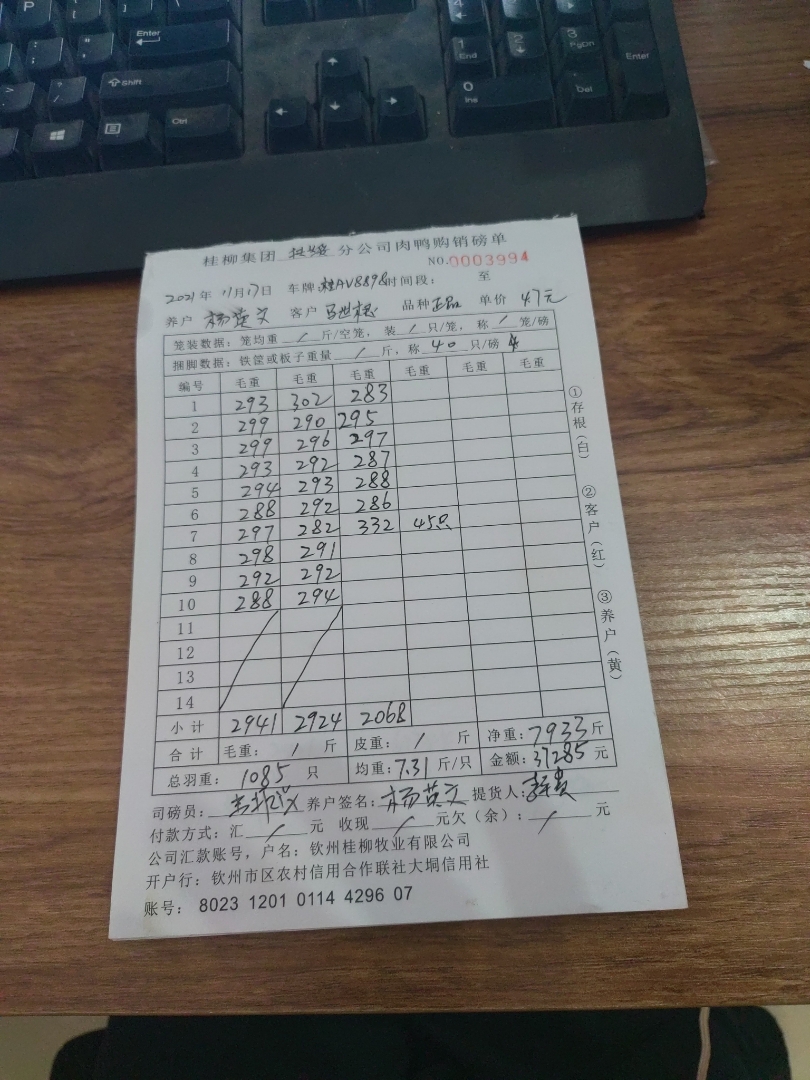 P
Enter
Shift
Ctrl
4
1 End
2
3 PgDn
Enter
0 Ins
Del
桂柳集团 分公司肉鸭购销磅单
NO.0003994
2021年11月17日 车牌:桂AV8898 时间段: 至
养户 杨英文 客户 品种 正品 单价 4.7元
笼装数据:笼均重 / 斤/空笼,装 / 只/笼,称 / 笼/磅
捆脚数据:铁筐或板子重量 / 斤,称 40 只/磅
编号 毛重 毛重 毛重 毛重 毛重 毛重
1 293 302 283
2 299 290 295
3 299 296 297
4 293 292 287
5 294 293 288
6 288 292 286
7 297 282 332 45只
8 298 291
9 292 292
10 288 294
11
12
13
14
小计 2941 2924 2068
合计 毛重: / 斤 皮重: / 斤 净重:7933斤
总羽重: 1085 只 均重:7.31斤/只 金额:37285元
司磅员: 养户签名:杨英文 提货人:
付款方式:汇 / 元 收现 / 元欠(余): / 元
公司汇款账号,户名:钦州桂柳牧业有限公司
开户行:钦州市区农村信用合作联社大垌信用社
账号: 8023 1201 0114 4296 07
①存根(白)
②客户(红)
③养户(黄)